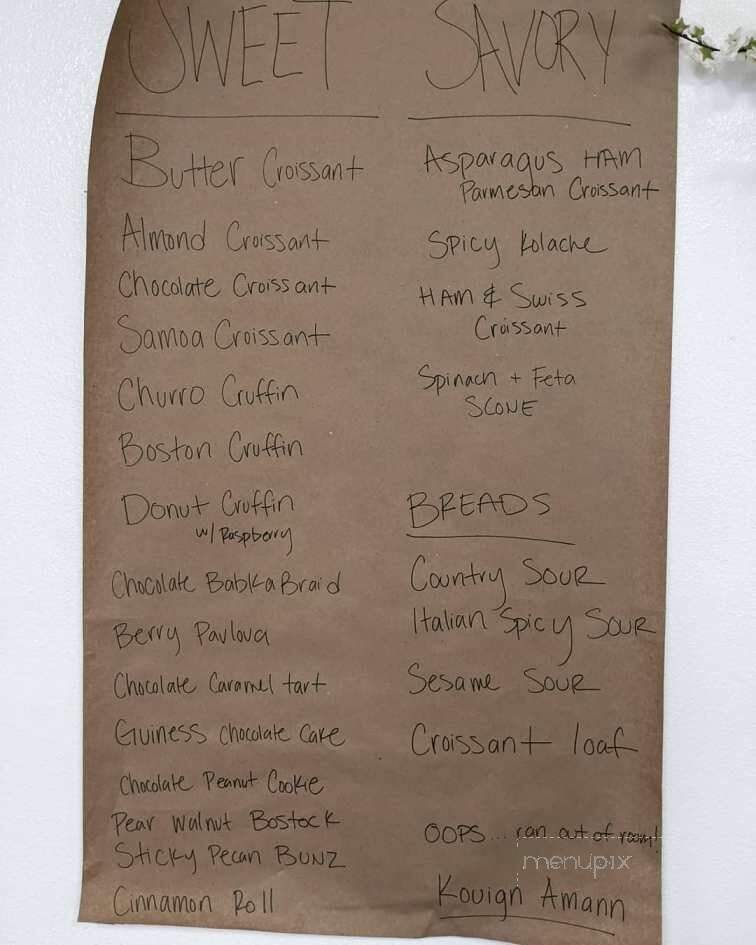 SWEET
Butter Croissant
Almond Croissant
Chocolate Croissant
Samoa Croissant
Churro Cruffin
Boston Cruffin
Donut Cruffin
w/ Raspberry
Chocolate Babka Braid
Berry Pavlova
Chocolate Caramel tart
Guiness Chocolate Cake
Chocolate Peanut Cookie
Pear Walnut Bostock
Sticky Pecan BUNZ
Cinnamon Roll
SAVORY
Asparagus HAM
Parmesan Croissant
Spicy Kolache
HAM & Swiss
Croissant
Spinach + Feta
SCONE
BREADS
Country SOUR
Italian Spicy SOUR
Sesame SOUR
Croissant loaf
OOPS... ran out of room!
Kouign Amann
menupix